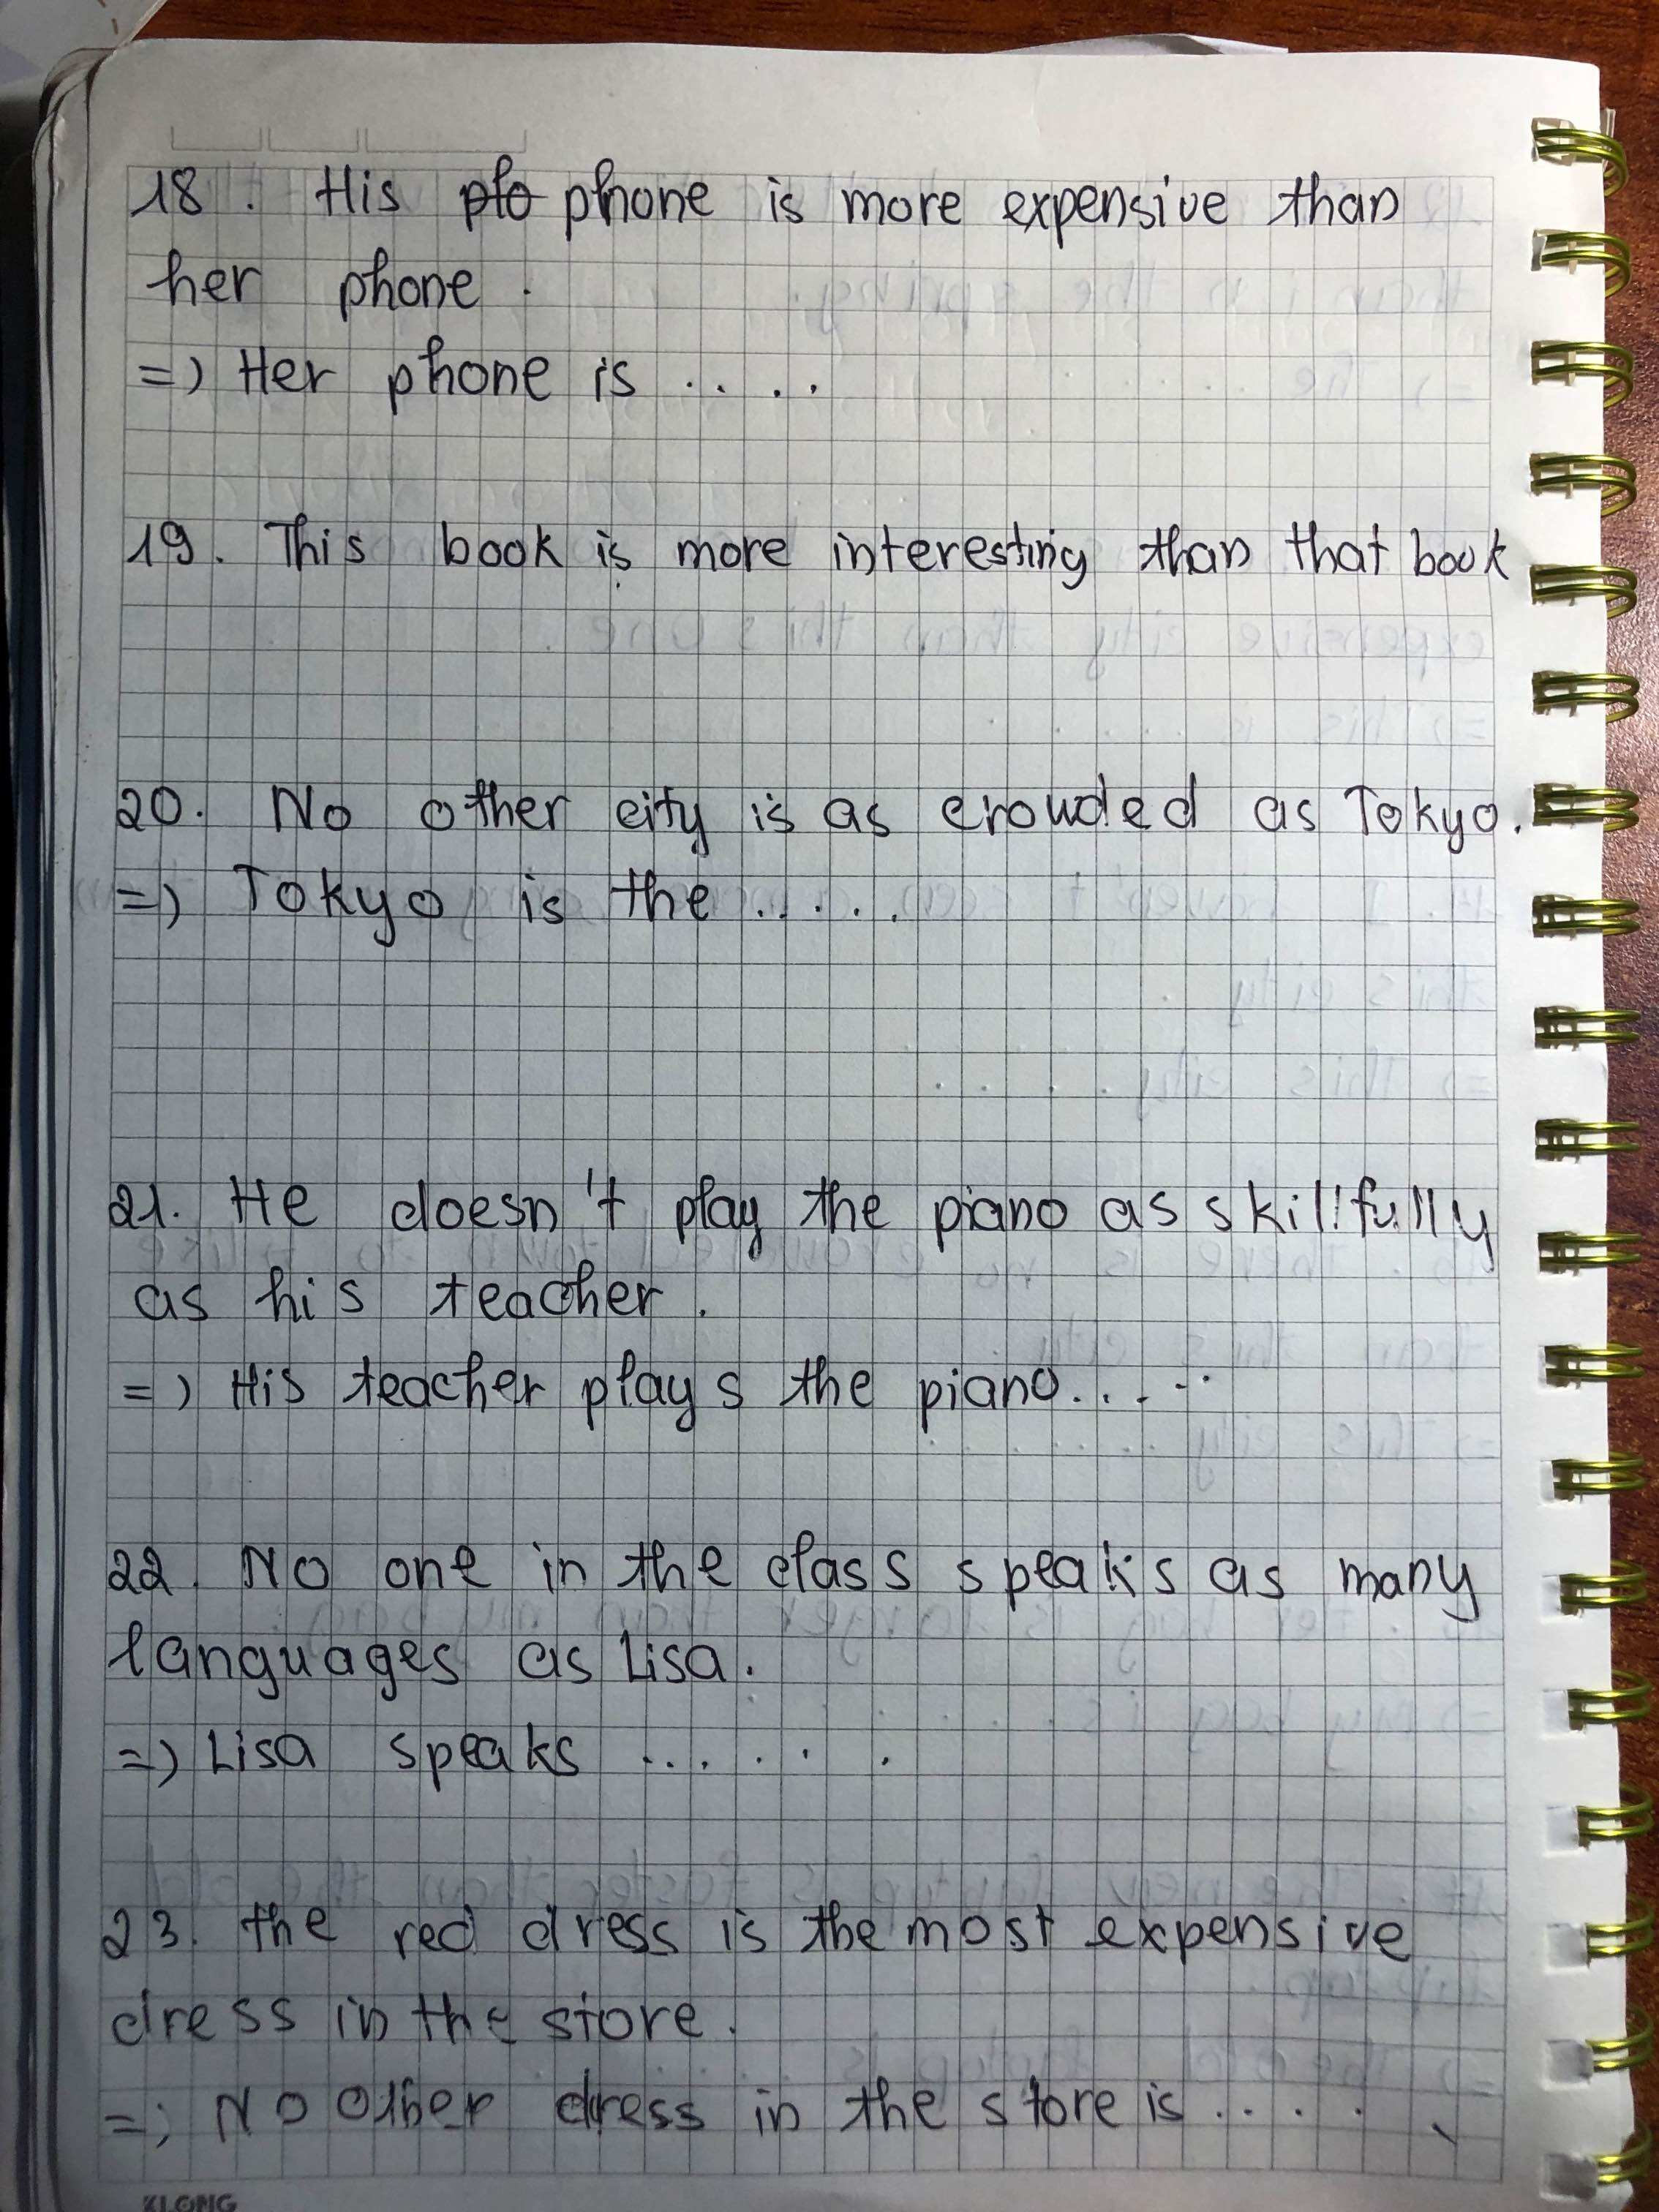 18. His plo phone is more expensive than
her phone.
=) Her phone is ....
19. This book is more interesting than that book
20. No other city is as crowded as Tokyo.
=) Tokyo is the .....
21. He doesn't play the piano as skillfully
as his teacher.
=) His teacher plays the piano.....
22. No one in the class speaks as many
languages as Lisa.
=) Lisa speaks ......
23. the red dress is the most expensive
dress in the store.
=) No other dress in the store is ....
KLONG